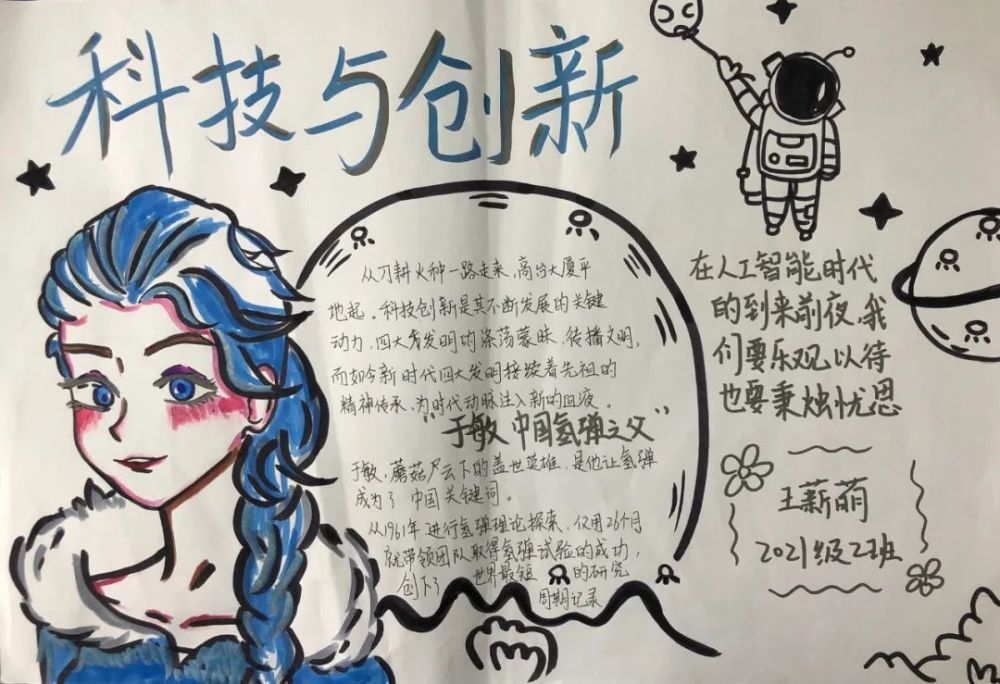 科技与创新
从刀耕火种一路走来,高台大厦平
地起。科技创新是其不断发展的关键
动力,四大发明的涤荡蒙昧,传播文明,
而如今新时代四大发明接续着先祖的
精神传承,为时代动脉注入新的血液。
“于敏 中国氢弹之父”
于敏,蘑菇云下的盖世英雄,是他让氢弹
成为了 中国关键词。
从1961年进行氢弹理论探索,仅用26个月
就带领团队取得氢弹试验的成功,
创下了 世界最短 的研究
周期记录
在人工智能时代
的到来前夜,我
们要乐观以待
也要秉烛忧恩
王薪萌
2021级2班